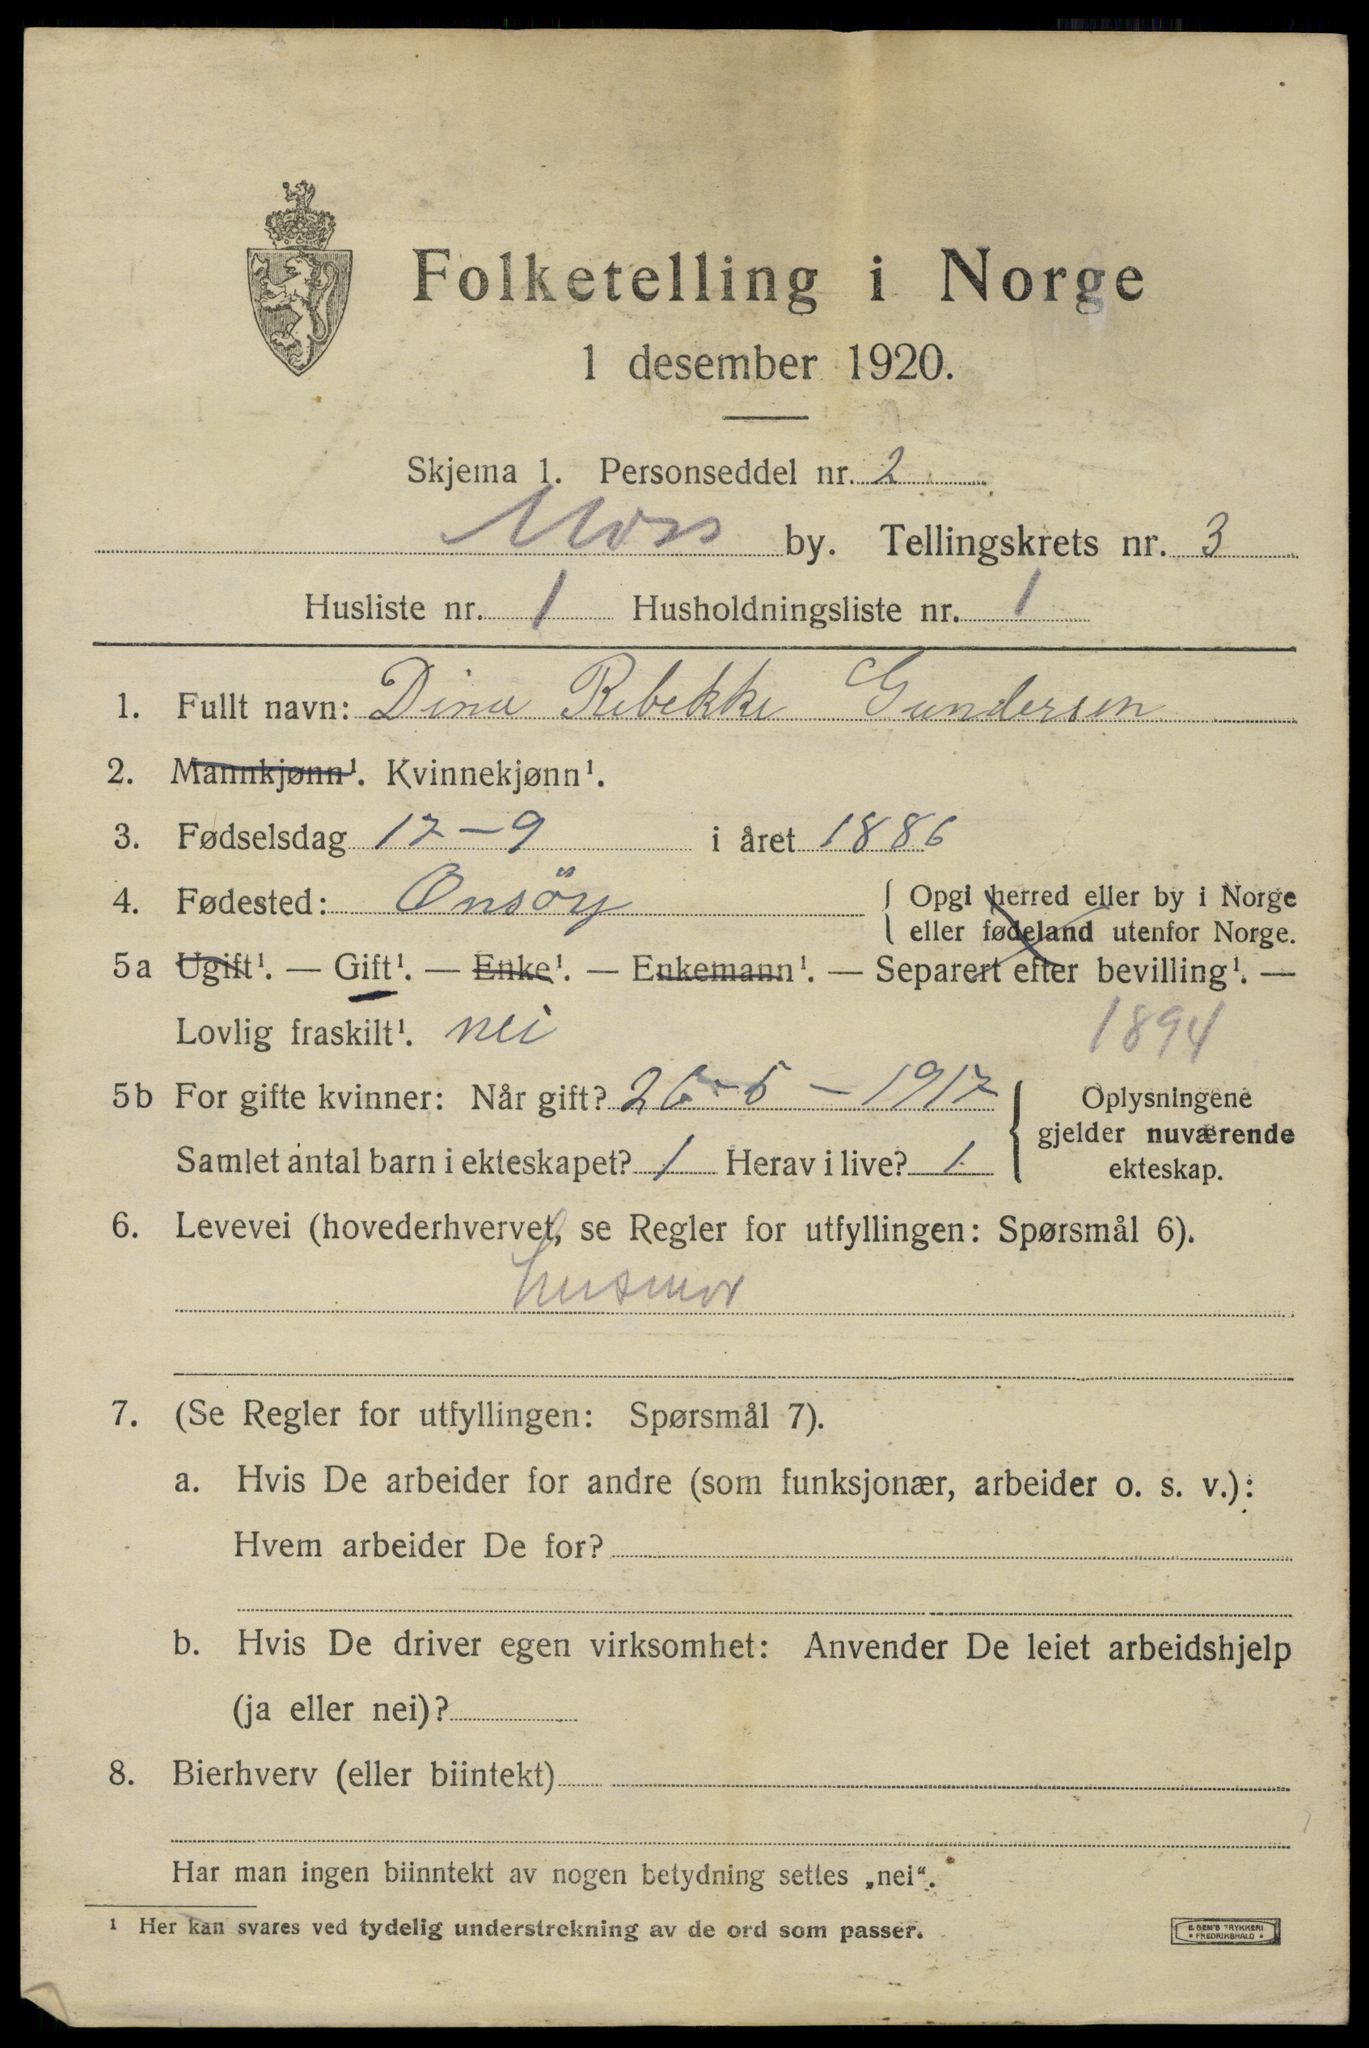 Folketelling i Norge
1 desember 1920.
Skjema 1. Personseddel nr. 2
Moss by. Tellingskrets nr. 3
Husliste nr. 1 Husholdningsliste nr. 1
1. Fullt navn: Dina Rebekke Gundersen
2. Mannkjønn¹. Kvinnekjønn¹.
3. Fødselsdag 17-9 i året 1886
4. Fødested: Onsöy { Opgi herred eller by i Norge
eller fødeland utenfor Norge.
5a Ugift¹. — Gift¹. — Enke¹. — Enkemann¹. — Separert efter bevilling¹. —
Lovlig fraskilt¹. nei 1894
5b For gifte kvinner: Når gift? 26-5-1917 { Oplysningene
gjelder nuværende
Samlet antal barn i ekteskapet? 1 Herav i live? 1. ekteskap.
6. Levevei (hovederhvervet, se Regler for utfyllingen: Spørsmål 6).
husmor
7. (Se Regler for utfyllingen: Spørsmål 7).
a. Hvis De arbeider for andre (som funksjonær, arbeider o. s. v.):
Hvem arbeider De for?
b. Hvis De driver egen virksomhet: Anvender De leiet arbeidshjelp
(ja eller nei)?
8. Bierhverv (eller biintekt)
Har man ingen biinntekt av nogen betydning settes „nei“.
¹ Her kan svares ved tydelig understrekning av de ord som passer.
E. SEM'S TRYKKERI
• FREDRIKSHALD •